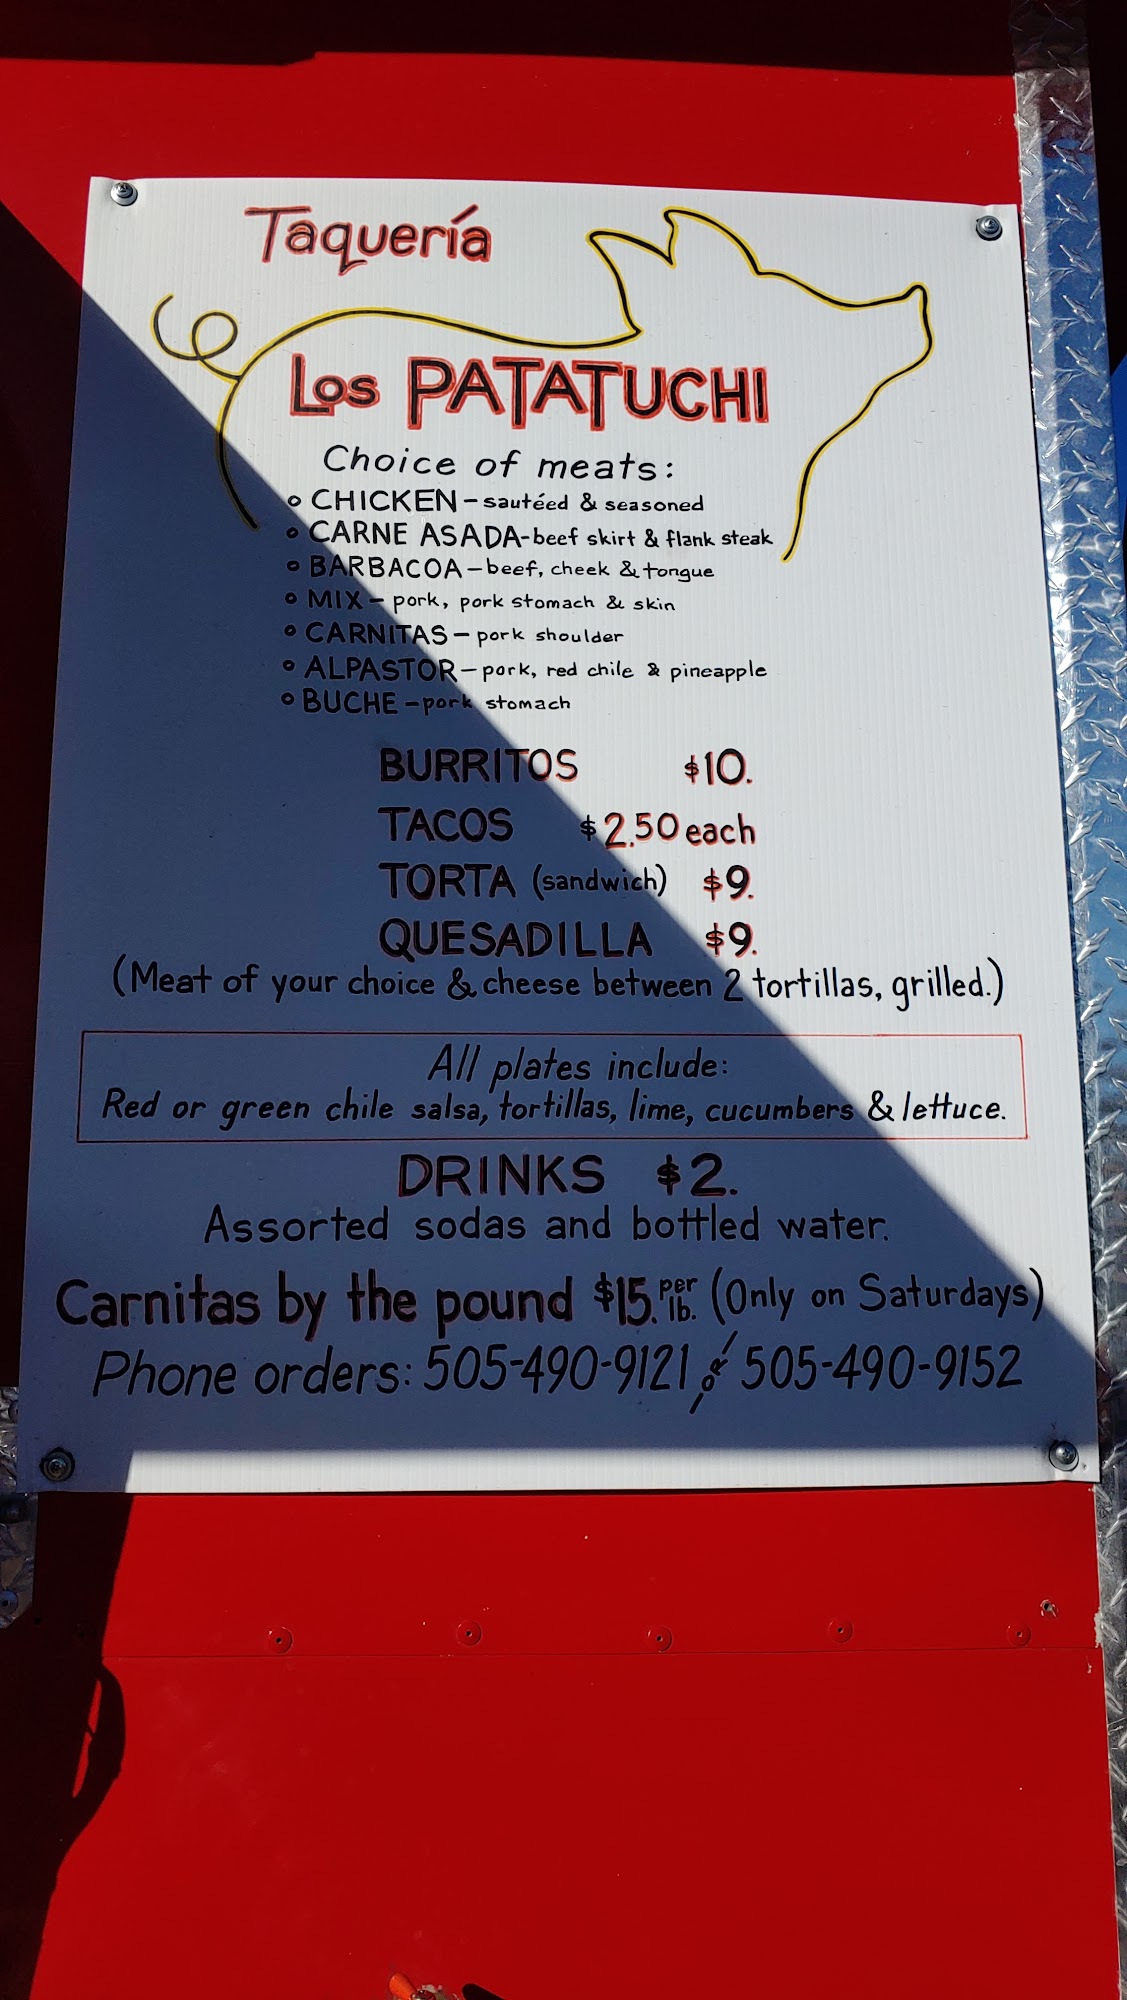 Taquería
Los PATATUCHI
Choice of meats:
o CHICKEN - sautéed & seasoned
o CARNE ASADA - beef skirt & flank steak
o BARBACOA - beef, cheek & tongue
o MIX - pork, pork stomach & skin
o CARNITAS - pork shoulder
o ALPASTOR - pork, red chile & pineapple
o BUCHE - pork stomach
BURRITOS $10.
TACOS $2.50 each
TORTA (sandwich) $9.
QUESADILLA $9.
(Meat of your choice & cheese between 2 tortillas, grilled.)
All plates include:
Red or green chile salsa, tortillas, lime, cucumbers & lettuce.
DRINKS $2.
Assorted sodas and bottled water.
Carnitas by the pound $15. per lb. (Only on Saturdays)
Phone orders: 505-490-9121 or 505-490-9152